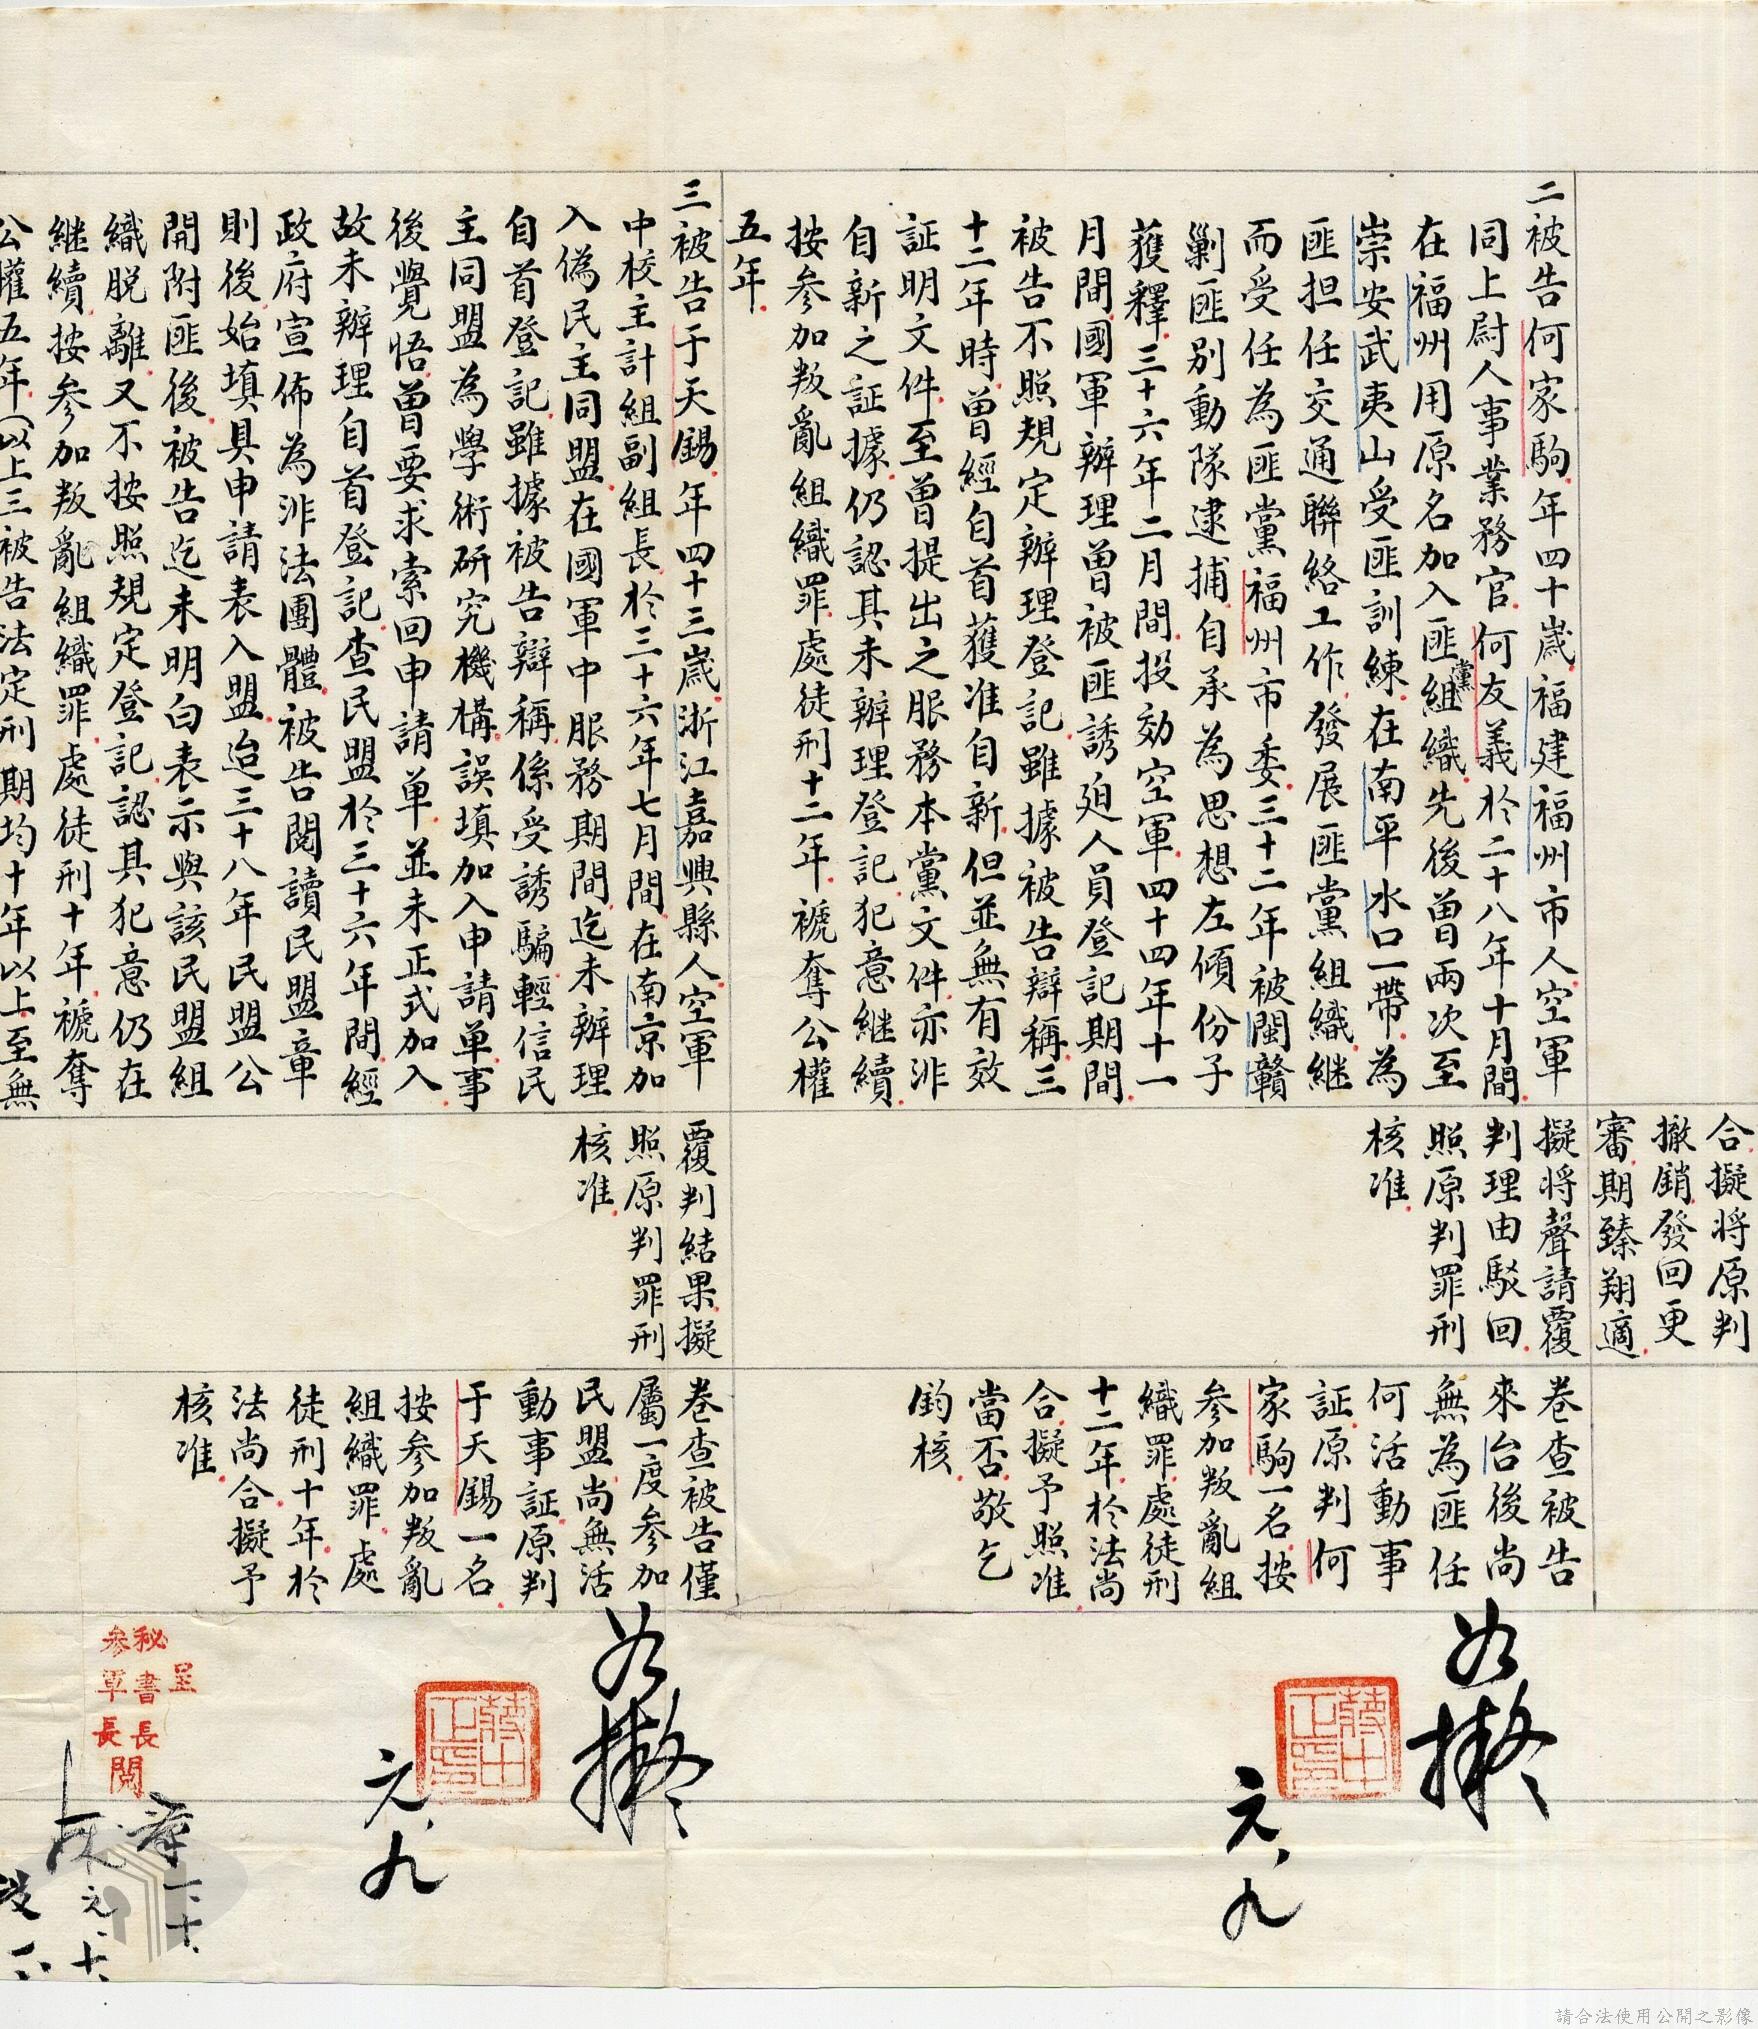 二被告何家駒年四十歲福建福州市人空軍
同上尉人事業務官何友義於二十八年十月間
在福州用原名加入匪黨組織先後曾兩次至
崇安武夷山受匪訓練在南平水口一帶為
匪担任交通聯絡工作發展匪黨組織繼
而受任為匪黨福州市委三十二年被閩贛
剿匪別動隊逮捕自承為思想左傾份子
獲釋三十六年二月間投効空軍四十四年十一
月間國軍辦理曾被匪誘廹人員登記期間
被告不照規定辦理登記雖據被告辯稱三
十二年時曾經自首獲准自新但並無有效
証明文件至曾提出之服務本黨文件亦非
自新之証據仍認其未辦理登記犯意繼續
按參加叛亂組織罪處徒刑十二年褫奪公權
五年
三被告于天錫年四十三歲浙江嘉興縣人空軍
中校主計組副組長於三十六年七月間在南京加
入偽民主同盟在國軍中服務期間迄未辦理
自首登記雖據被告辯稱係受誘騙輕信民
主同盟為學術研究機構誤填加入申請單事
後覺悟曾要求索回申請單並未正式加入
故未辦理自首登記查民盟於三十六年間經
政府宣佈為非法團體被告閱讀民盟章
則後始填具申請表入盟迨三十八年民盟公
開附匪後被告迄未明白表示與該民盟組
織脫離又不按照規定登記認其犯意仍在
繼續按參加叛亂組織罪處徒刑十年褫奪
公權五年(以上三被告法定刑期均十年以上至無
合擬將原判
撤銷發回更
審期臻翔適
擬將聲請覆
判理由駁回
照原判罪刑
核准
覆判結果擬
照原判罪刑
核准
卷查被告
來台後尚
無為匪任
何活動事
証原判何
家駒一名按
參加叛亂組
織罪處徒刑
十二年於法尚
合擬予照准
當否敬乞
鈞核
卷查被告僅
屬一度參加
民盟尚無活
動事証原判
于天錫一名
按參加叛亂
組織罪處
徒刑十年於
法尚合擬予
核准
如擬
蔣中正印
元、九
如擬
蔣中正印
元、九
呈
秘書長
參軍長
閱
一、十、
元、十、
請合法使用公開之影像